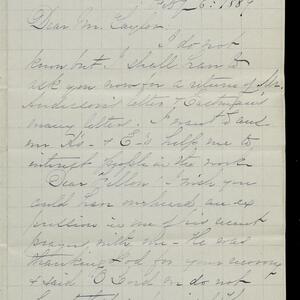 Feby 6. 1889
Dear Mr. Taylor:
I do not
know but I shall have to
ask you now for a return of Mr.
Anderson's letter &
many letters. I want to use
Mr. K's - & E's help me to
interest people in the work.
Dear fellow - I wish you
could have overheard an ex
pression in one of his recent
prayers, with me - He was
thanking God for your recovery
& said "O Lord we do not